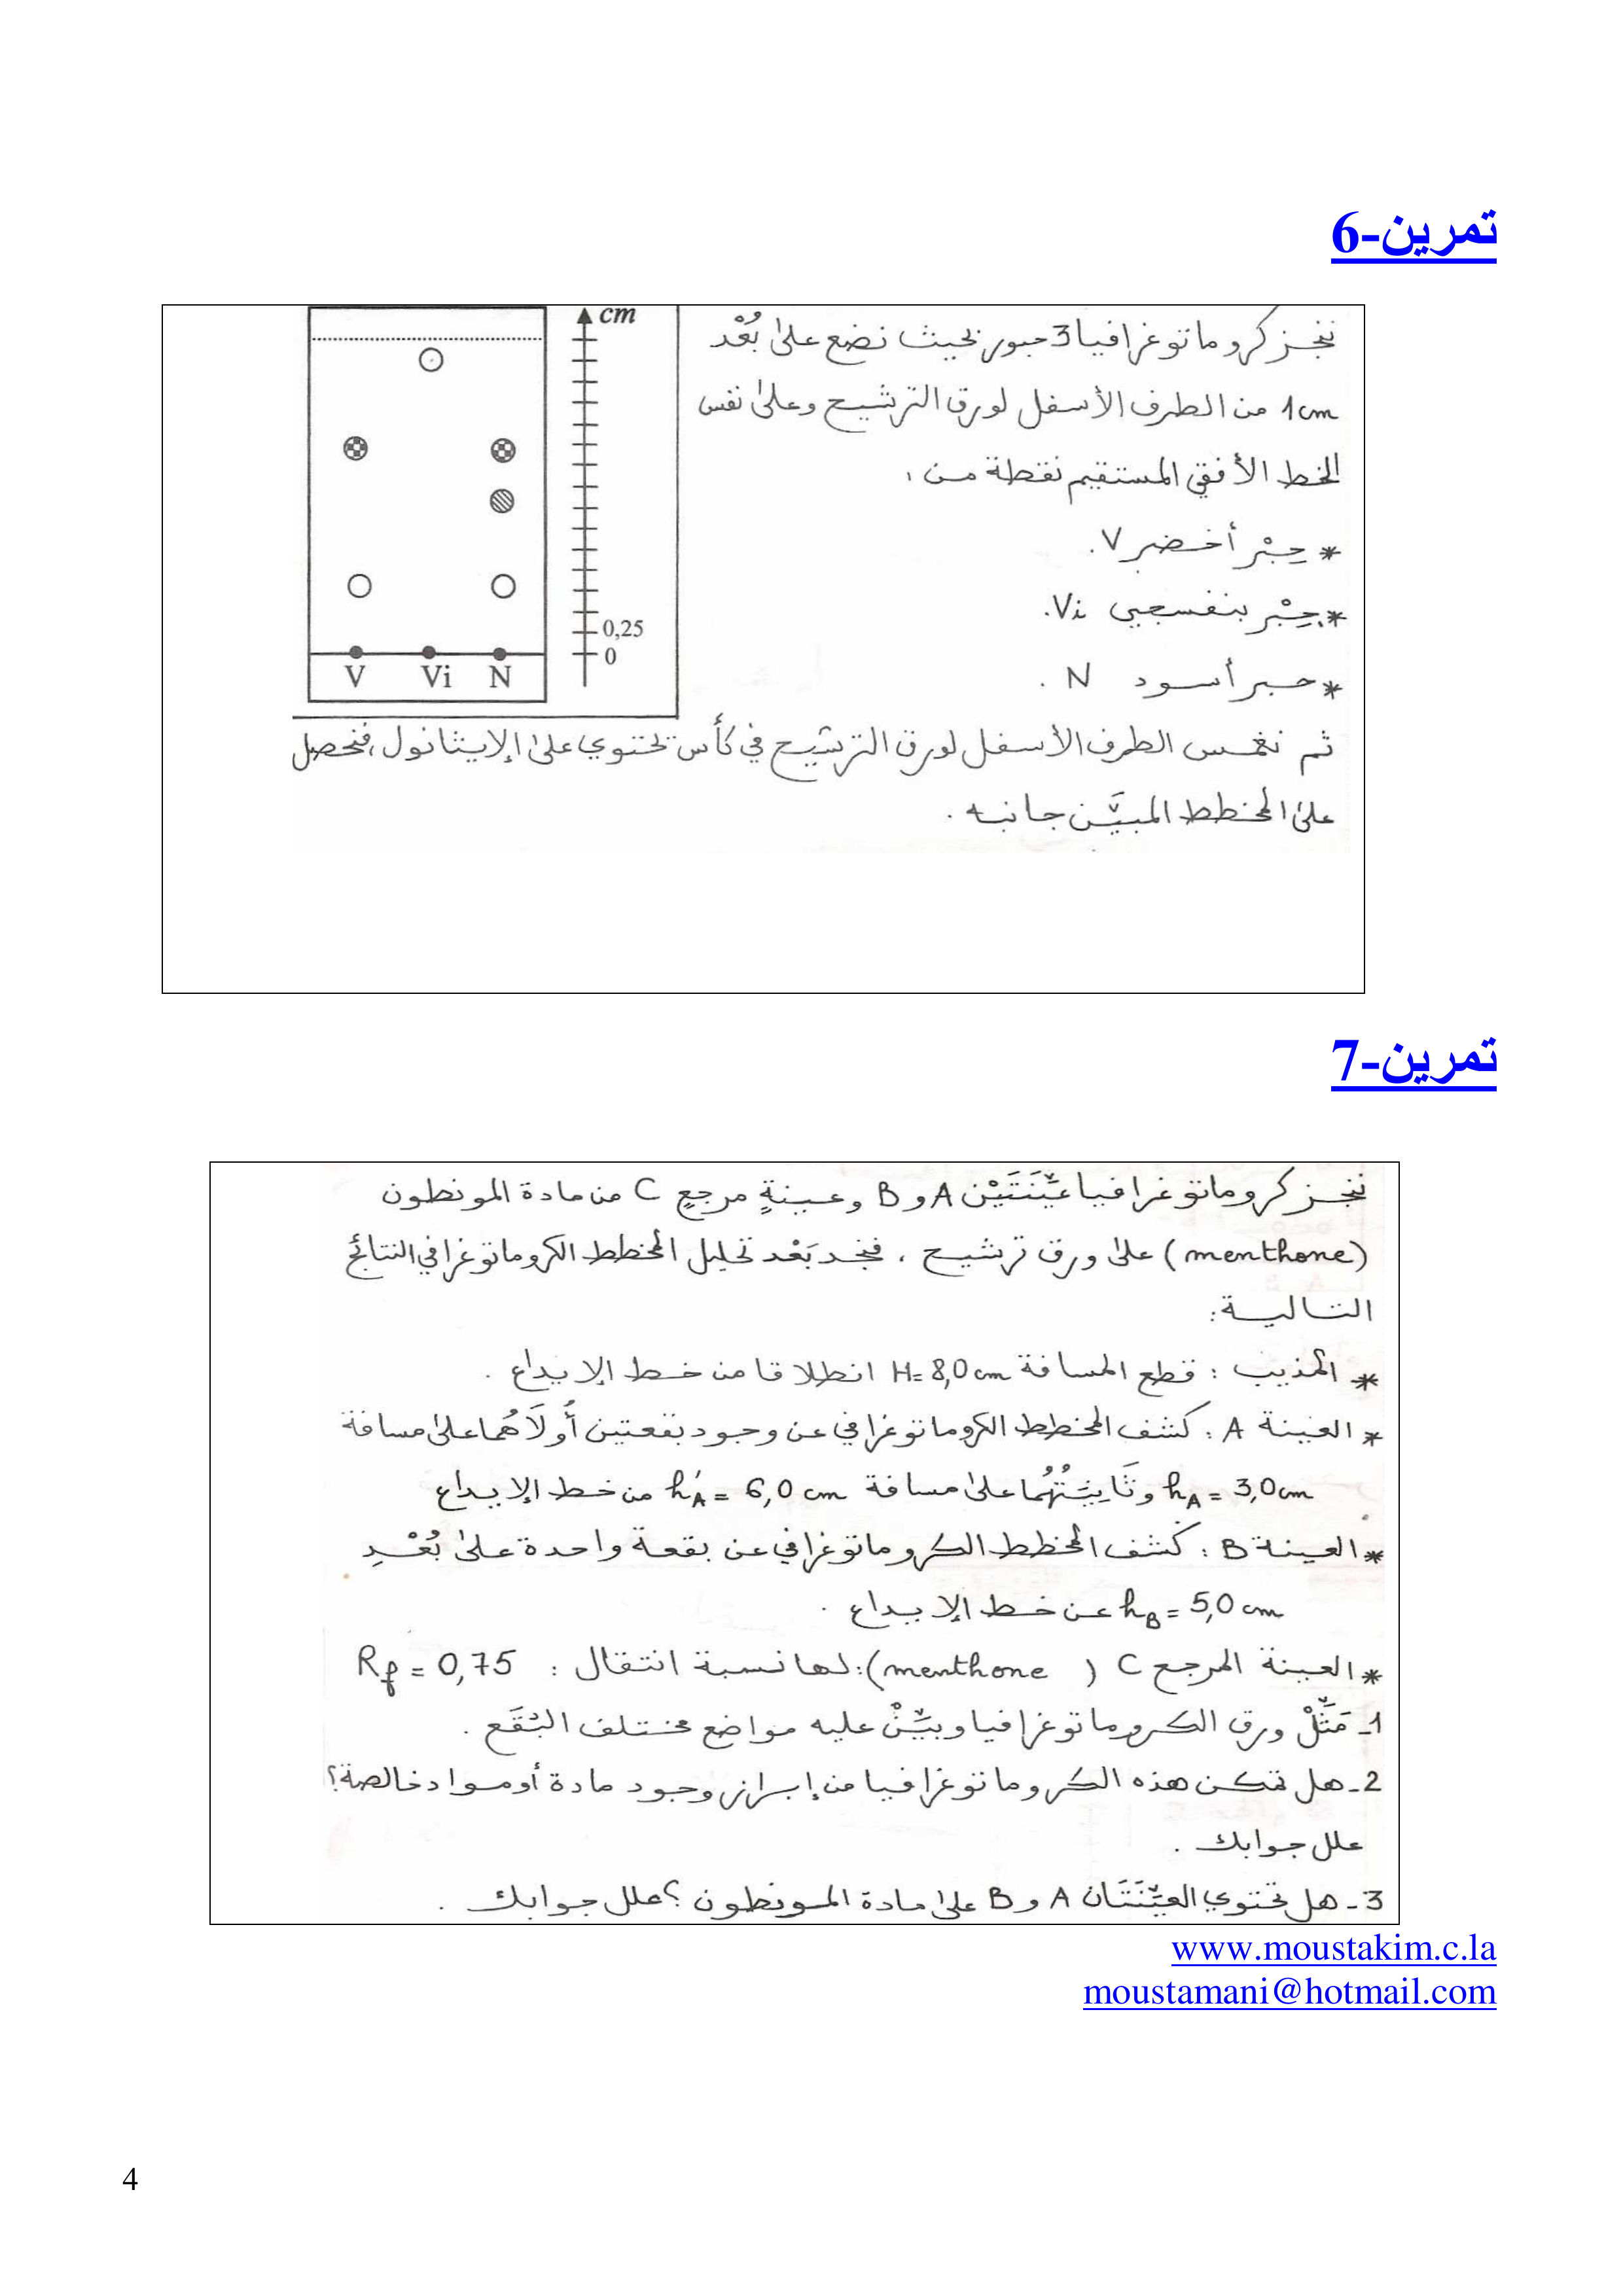 تمرين-6
ننجز كروماتوغرافيا 3 حبور بحيث نضع على بُعْد
1cm من الطرف الأسفل لورق الترشيح وعلى نفس
الخط الأفقي المستقيم نقطة من :
* حِبْر أخضر V.
* حِبْر بنفسجي Vi.
* حبر أسود N .
cm
0,25
0
V Vi N
ثم نغمس الطرف الأسفل لورق الترشيح في كأس تحتوي على الإيثانول، فنحصل
على المخطط المبيَّن جانبه .
تمرين-7
ننجز كروماتوغرافيا عيِّنَتَيْن A و B وعينةٍ مرجعٍ C من مادة المونطون
(menthone) على ورق ترشيح ، فنجد بَعْد تحليل المخطط الكروماتوغرافي النتائج
التالية:
* المذيب : قطع المسافة H= 8,0 cm انطلاقا من خط الإيداع .
* العينة A : كشف المخطط الكروماتوغرافي عن وجود بقعتين أُولَاهُما على مسافة
hA = 3,0cm وثَانِيَتُهُما على مسافة h'A = 6,0 cm من خط الإيداع
* العينة B : كشف المخطط الكروماتوغرافي عن بقعة واحدة على بُعْدِ
hB = 5,0 cm عن خط الإيداع .
* العينة المرجع C ( menthone): لها نسبة انتقال : Rf = 0,75
1- مَثِّلْ ورق الكروماتوغرافيا وبيِّنْ عليه مواضع مختلف البُقَع .
2- هل تمكن هذه الكروماتوغرافيا من إبراز وجود مادة أو مواد خالصة؟
علل جوابك .
3- هل تحتوي العيِّنَتَان A و B على مادة المونطون ؟ علل جوابك .
www.moustakim.c.la
moustamani@hotmail.com
4